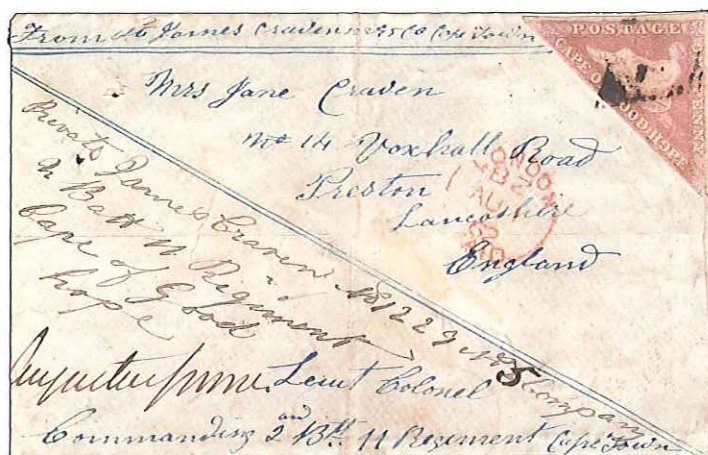 From James Craven No 5 Co Cape Town
POSTAGE
CAPE OF GOOD HOPE
Mrs Jane Craven
No 14 Voxhall Road
Preston
Lancoshire
England
LONDON
AU
PAID
Private James Craven No 1229 No 5 Company
2 Batt 11 Regiment
Cape of Good
hope
Leiut Colonel
Commanding 2 and Btt. 11 Regiment Cape Town